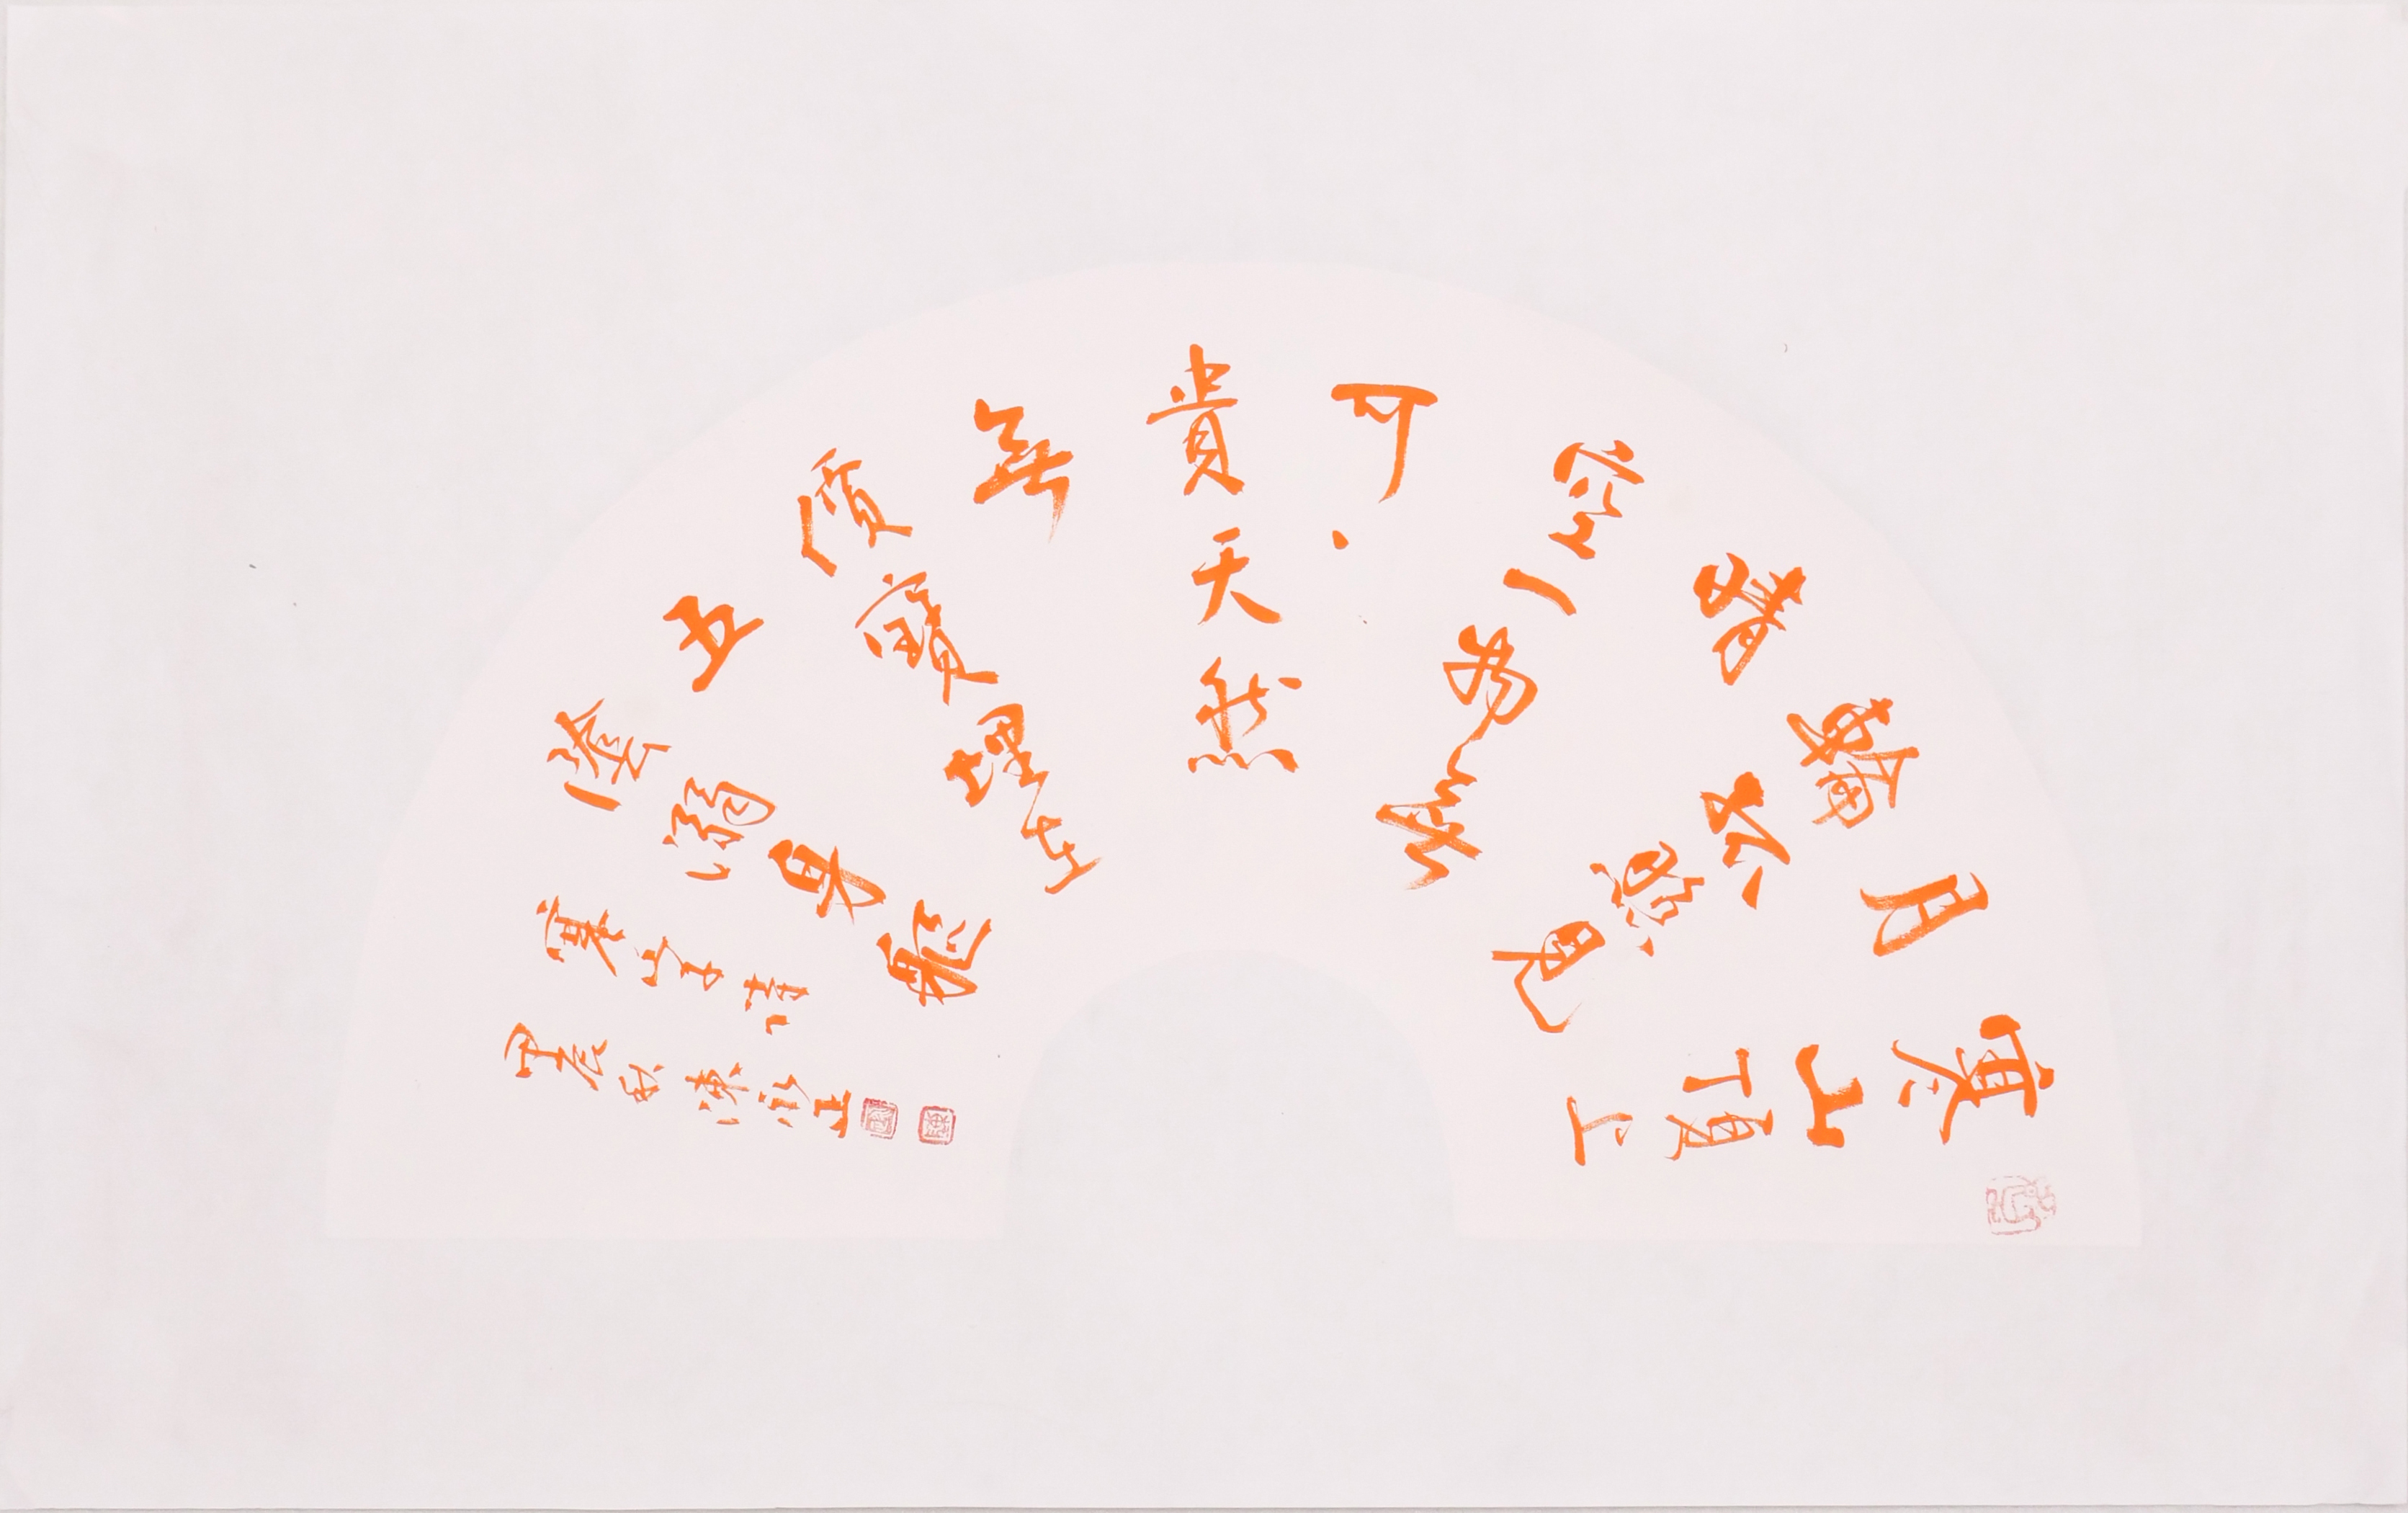 寒山頂上
月
輪孤照見
晴
空一物無
可、
貴天然
無
價寶埋在
五
陰溺身軀
寒山子詩
甲辰秋陳